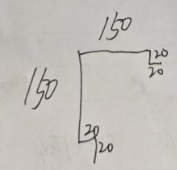 150
20
20
150
20
20